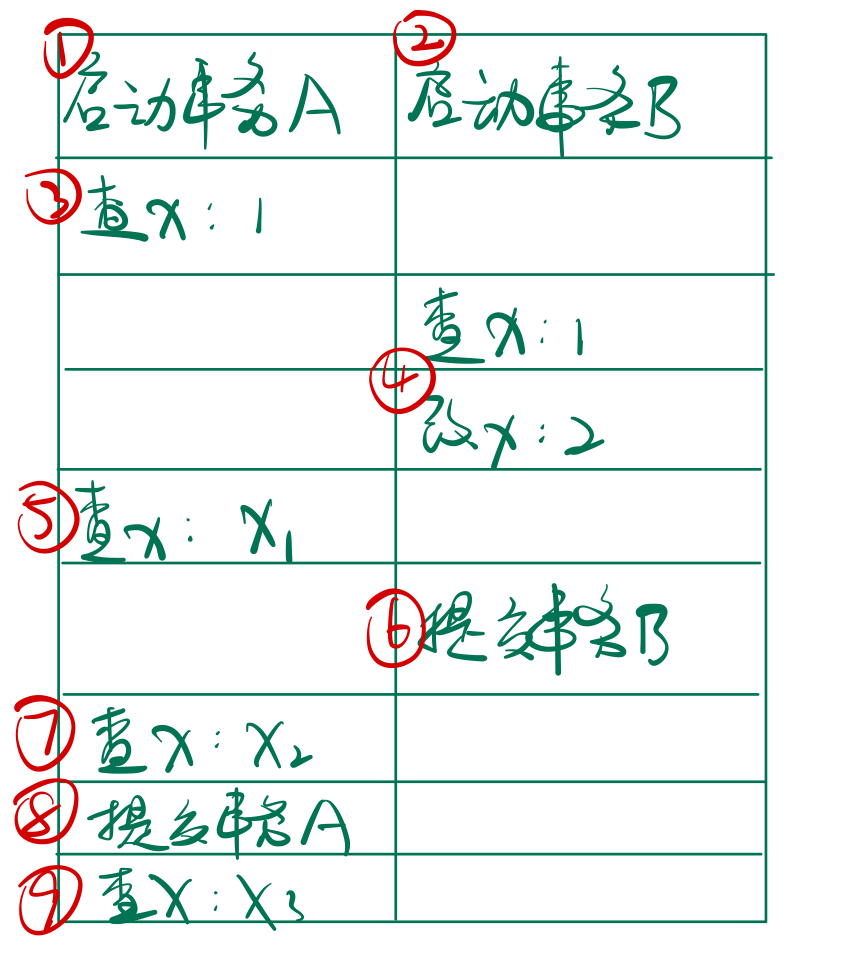 ① 启动事务A ② 启动事务B
③ 查X: 1
查X: 1
④ 改X: 2
⑤ 查X: X₁
⑥ 提交事务B
⑦ 查X: X₂
⑧ 提交事务A
⑨ 查X: X₃